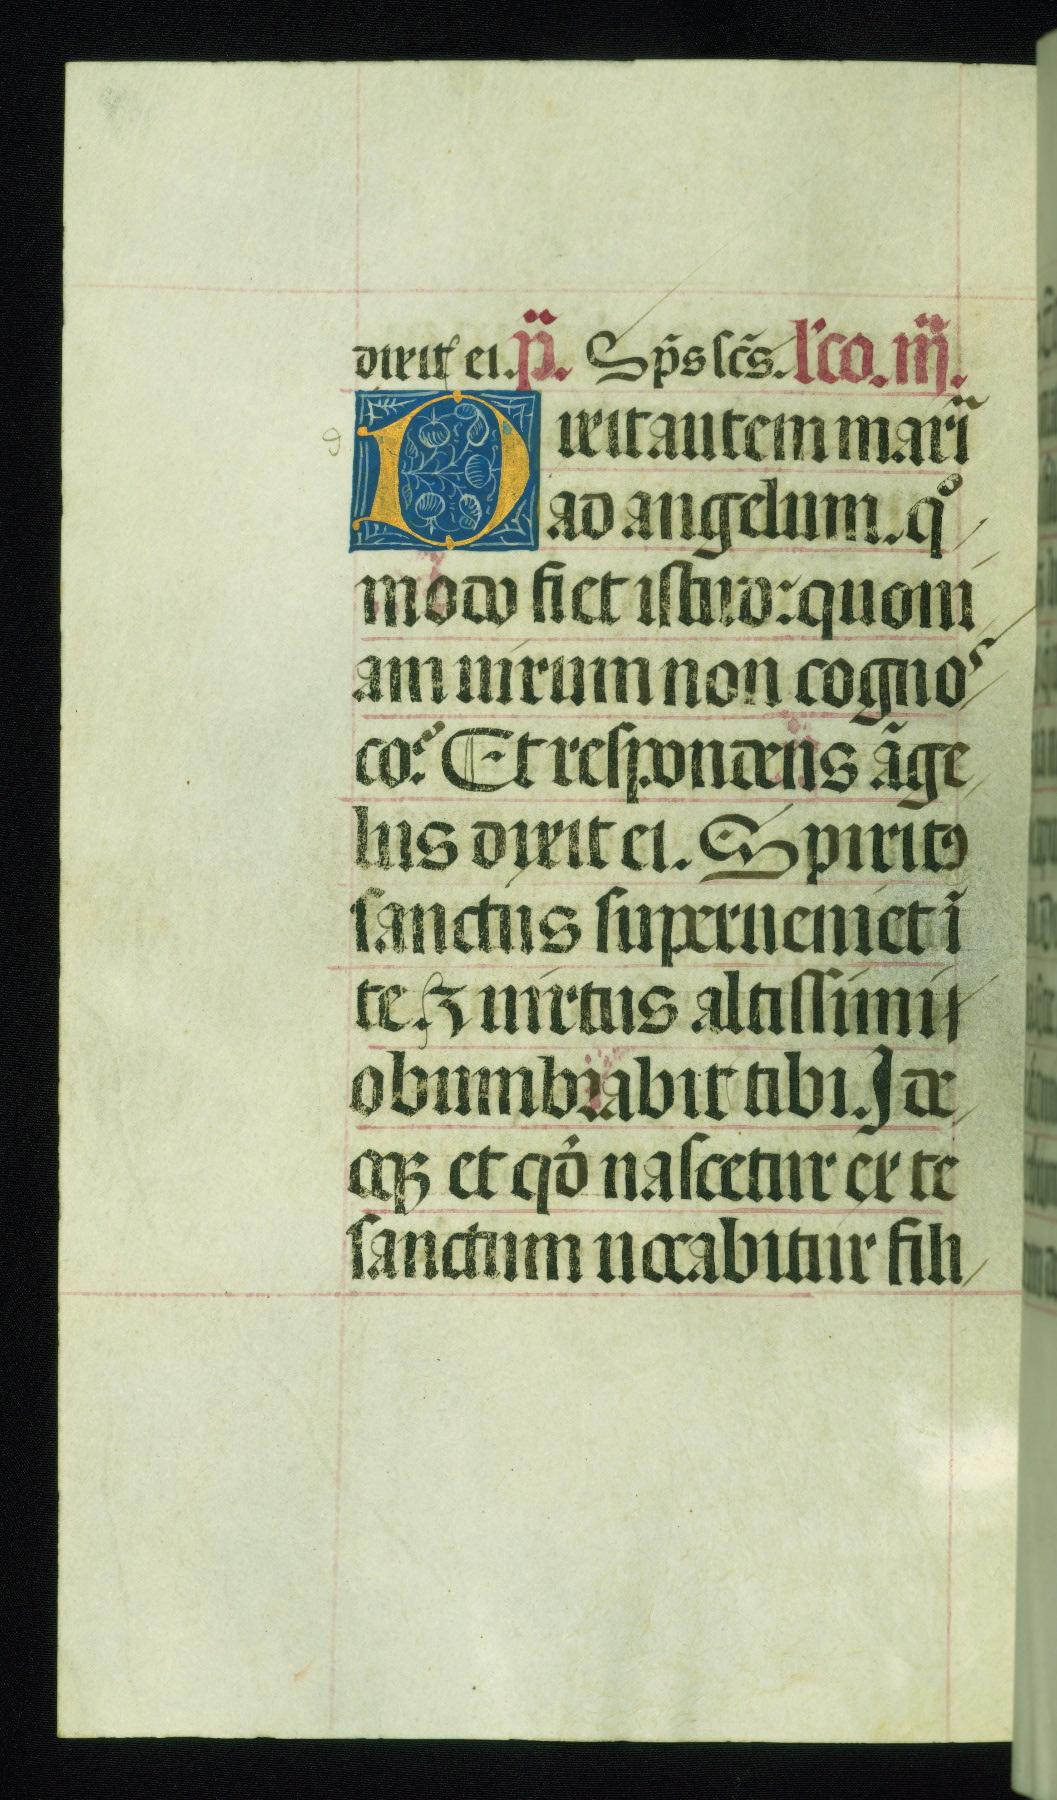 dixit ei. p̃. Sp̃s sc̃s. l'co. iij̃.
Dixit autem mari
ad angelum. qͦ
modo fiet istud: quoni
am uirum non cognos
co? Et respondens ãge
lus dixit ei. Spiritꝯ
sanctus superueniet ĩ
te. ⁊ uirtus altissimi
obumbrabit tibi. Jde
oqꝫ et qd̾ nascetur ex te
sanctum uocabitur fili